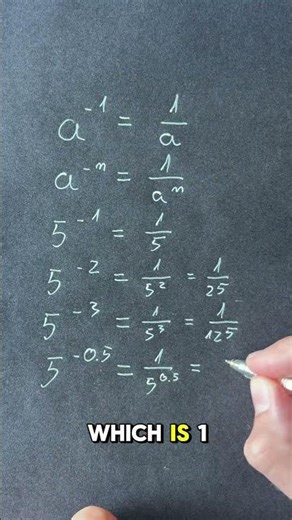 a⁻¹ = 1/a
a⁻ⁿ = 1/aⁿ
5⁻¹ = 1/5
5⁻² = 1/5² = 1/25
5⁻³ = 1/5³ = 1/125
5⁻⁰·⁵ = 1/5⁰·⁵ =
WHICH IS 1